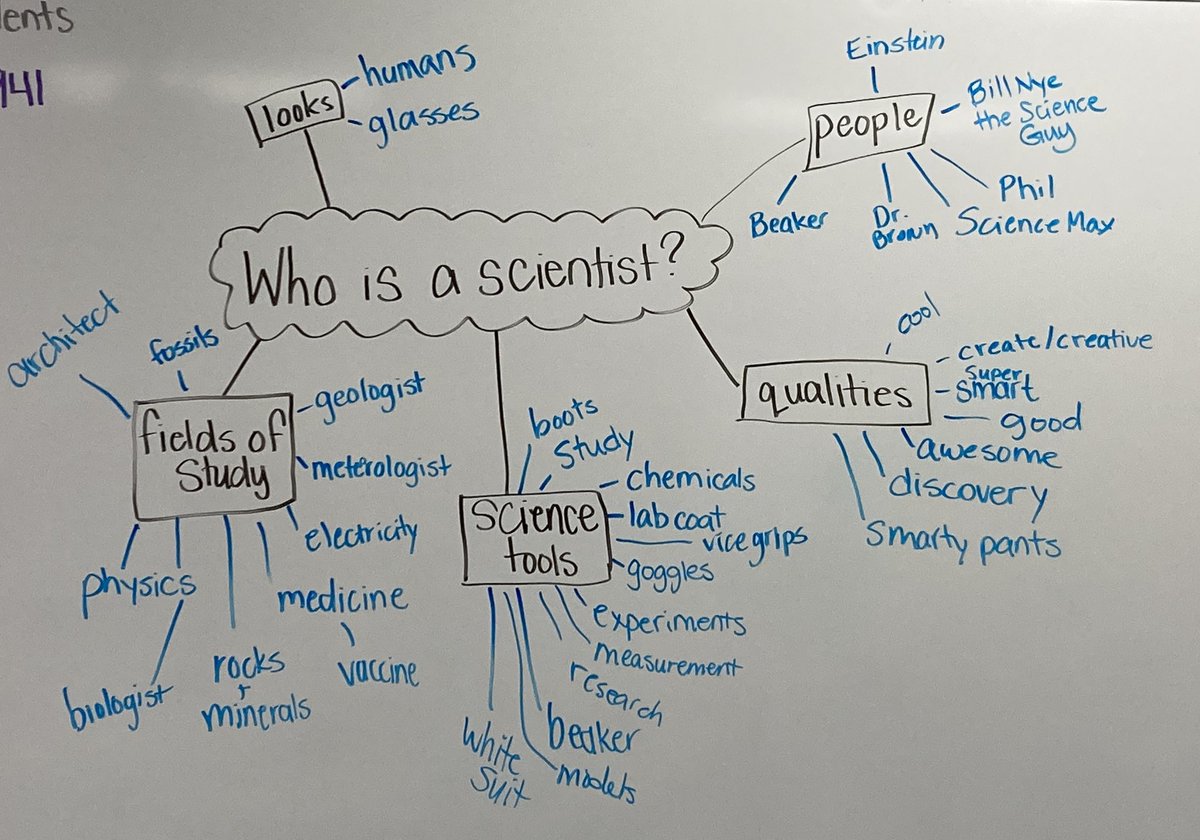 ents
941
looks
humans
glasses
Einstein
people
Bill Nye
the Science
Guy
Phil
Science Max
Dr.
Brown
Beaker
Who is a scientist?
architect
fossils
fields of
Study
geologist
meterologist
electricity
medicine
vaccine
physics
biologist
rocks
+
minerals
boots
Study
Science
tools
chemicals
lab coat
vice grips
goggles
experiments
measurement
research
beaker
models
White
Suit
cool
qualities
create/creative
super
smart
good
awesome
discovery
Smarty pants